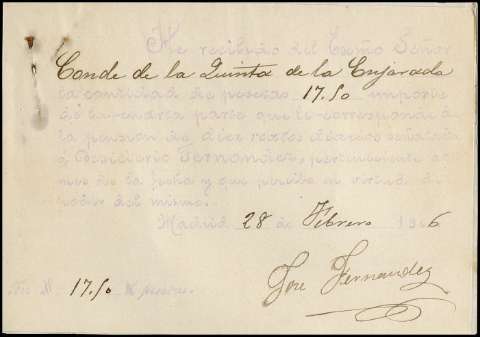 He recibido del Excmo Señor
Conde de la Quinta de la Enjarada
la cantidad de pesetas 17.50 importe
de la cuarta parte que le corresponde de
la pensión de diez reales diarios señalada
á Fernandez, perteneciente al
mes de la fecha y que percibo en virtud de
poder del mismo.
Madrid 28 de Febrero 1906
José Fernandez
Son 17.50 pesetas.